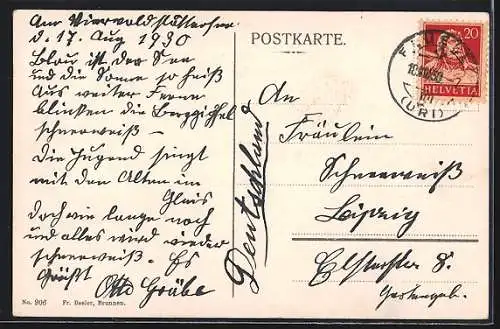 Am Vierwaldstättersee
d. 17. Aug 1930
Blau ist der See
und die Sonne so heiß
Aus weiter Ferne
blinken die Berggipfel
schneeweiß –
Die Jugend singt
mit den Alten im
Gleis
Doch wie lange noch
und alles wird wieder
schneeweiß. Es
Grüßt
Otto Gräbe
No. 906 Fr. Besler, Brunnen.
POSTKARTE.
An
Fräulein
Schneeweiß
Leipzig
Elsterstr 8.
Gartengeb.
Deutschland
20
HELVETIA
(URI)